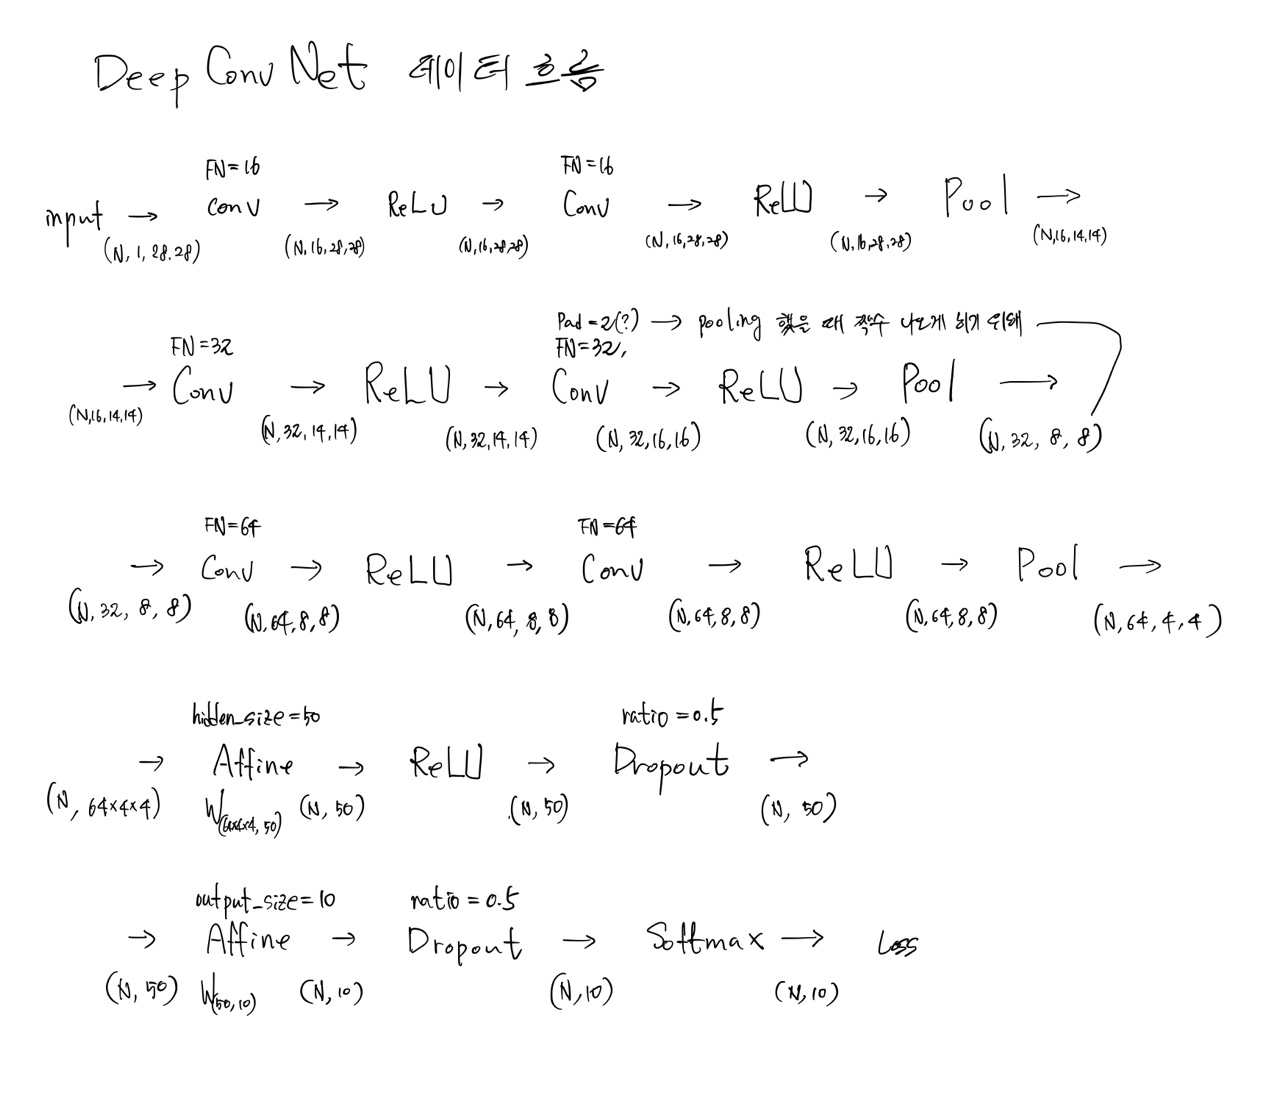 Deep Conv Net 데이터 흐름
FN=16 FN=16
input → Conv → ReLU → Conv → ReLU → Pool →
(N, 1, 28, 28) (N, 16, 28, 28) (N, 16, 28, 28) (N, 16, 28, 28) (N, 16, 28, 28) (N, 16, 14, 14)
Pad=2(?) → pooling 했을 때 짝수 나오게 하기 위해
FN=32 FN=32,
→ Conv → ReLU → Conv → ReLU → Pool →
(N, 16, 14, 14) (N, 32, 14, 14) (N, 32, 14, 14) (N, 32, 16, 16) (N, 32, 16, 16) (N, 32, 8, 8)
FN=64 FN=64
→ Conv → ReLU → Conv → ReLU → Pool →
(N, 32, 8, 8) (N, 64, 8, 8) (N, 64, 8, 8) (N, 64, 8, 8) (N, 64, 8, 8) (N, 64, 4, 4)
hidden_size=50 ratio=0.5
→ Affine → ReLU → Dropout →
(N, 64×4×4) W(64×4×4, 50) (N, 50) (N, 50) (N, 50)
output_size=10 ratio=0.5
→ Affine → Dropout → Softmax → Loss
(N, 50) W(50, 10) (N, 10) (N, 10) (N, 10)